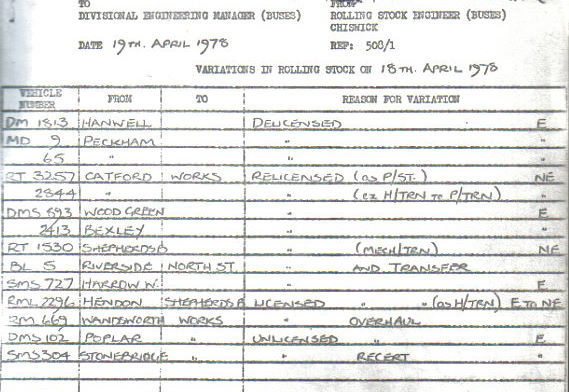 TO FROM
DIVISIONAL ENGINEERING MANAGER (BUSES) ROLLING STOCK ENGINEER (BUSES)
CHISWICK
DATE 19TH. APRIL 1978 REF: 508/1
VARIATIONS IN ROLLING STOCK ON 18TH. APRIL 1978
VEHICLE NUMBER FROM TO REASON FOR VARIATION
DM 1813 HANWELL DELICENSED E
MD 9 PECKHAM " "
65 " " "
RT 3257 CATFORD WORKS RELICENSED (as P/ST.) NE
2844 " " (ex H/TRN to P/TRN) "
DMS 893 WOOD GREEN " E
2413 BEXLEY " "
RT 1530 SHEPHERDS B " (MECH/TRN) NE
BL 5 RIVERSIDE NORTH ST " AND TRANSFER
SMS 727 HARROW W. " E
RML 2296 HENDON SHEPHERDS B LICENSED " " (as H/TRN) E to NE
RM 669 WANDSWORTH WORKS " OVERHAUL
DMS 102 POPLAR " UNLICENSED " E
SMS 304 STONEBRIDGE " " RECERT "